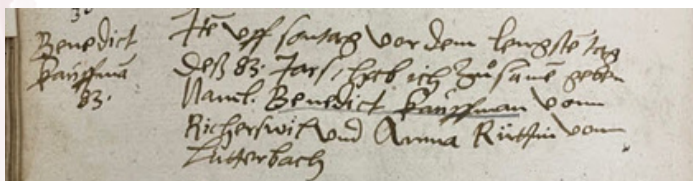 Benedict
Kauffma
83.
Ite vff sontag vor dem lengste tag
deß 83. Jars, hab ich zů same geben
Naml. Benedict Kauffman vonn
Richerswil vnd Anna Rüttin vonn
Lutterbach